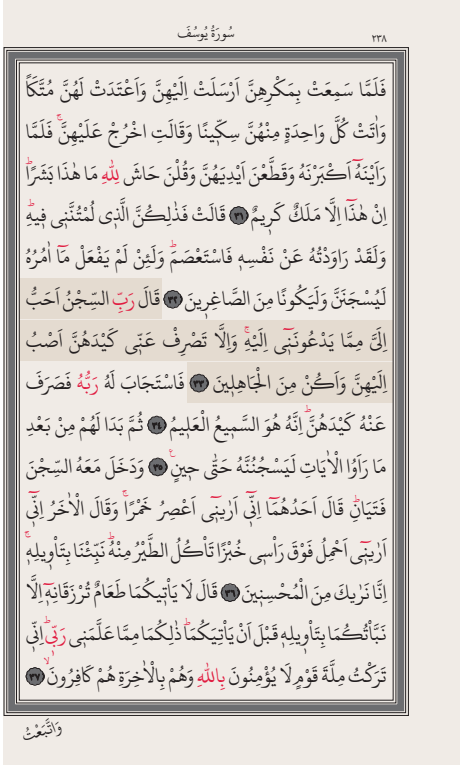 سُورَةُ يُوسُفَ
٢٣٨
فَلَمَّا سَمِعَتْ بِمَكْرِهِنَّ اَرْسَلَتْ اِلَيْهِنَّ وَاَعْتَدَتْ لَهُنَّ مُتَّكَـًٔا
وَاٰتَتْ كُلَّ وَاحِدَةٍ مِنْهُنَّ سِكّ۪ينًا وَقَالَتِ اخْرُجْ عَلَيْهِنَّۚ فَلَمَّا
رَاَيْنَهُٓ اَكْبَرْنَهُ وَقَطَّعْنَ اَيْدِيَهُنَّ وَقُلْنَ حَاشَ لِلّٰهِ مَا هٰذَا بَشَرًاۜ
اِنْ هٰذَٓا اِلَّا مَلَكٌ كَر۪يمٌ ﴿٣١﴾ قَالَتْ فَذٰلِكُنَّ الَّذ۪ي لُمْتُنَّن۪ي ف۪يهِۜ
وَلَقَدْ رَاوَدْتُهُ عَنْ نَفْسِه۪ فَاسْتَعْصَمَۜ وَلَئِنْ لَمْ يَفْعَلْ مَٓا اٰمُرُهُ
لَيُسْجَنَنَّ وَلَيَكُونًا مِنَ الصَّاغِر۪ينَ ﴿٣٢﴾ قَالَ رَبِّ السِّجْنُ اَحَبُّ
اِلَيَّ مِمَّا يَدْعُونَن۪ٓي اِلَيْهِۚ وَاِلَّا تَصْرِفْ عَنّ۪ي كَيْدَهُنَّ اَصْبُ
اِلَيْهِنَّ وَاَكُنْ مِنَ الْجَاهِل۪ينَ ﴿٣٣﴾ فَاسْتَجَابَ لَهُ رَبُّهُ فَصَرَفَ
عَنْهُ كَيْدَهُنَّۜ اِنَّهُ هُوَ السَّم۪يعُ الْعَل۪يمُ ﴿٣٤﴾ ثُمَّ بَدَا لَهُمْ مِنْ بَعْدِ
مَا رَاَوُا الْاٰيَاتِ لَيَسْجُنُنَّهُ حَتّٰى ح۪ينٍ۟ ﴿٣٥﴾ وَدَخَلَ مَعَهُ السِّجْنَ
فَتَيَانِۜ قَالَ اَحَدُهُمَٓا اِنّ۪ٓي اَرٰين۪ٓي اَعْصِرُ خَمْرًاۚ وَقَالَ الْاٰخَرُ اِنّ۪ٓي
اَرٰين۪ٓي اَحْمِلُ فَوْقَ رَأْس۪ي خُبْزًا تَأْكُلُ الطَّيْرُ مِنْهُۜ نَبِّئْنَا بِتَأْو۪يلِه۪ۚ
اِنَّا نَرٰيكَ مِنَ الْمُحْسِن۪ينَ ﴿٣٦﴾ قَالَ لَا يَأْت۪يكُمَا طَعَامٌ تُرْزَقَانِه۪ٓ اِلَّا
نَبَّأْتُكُمَا بِتَأْو۪يلِه۪ قَبْلَ اَنْ يَأْتِيَكُمَاۜ ذٰلِكُمَا مِمَّا عَلَّمَن۪ي رَبّ۪يۜ اِنّ۪ي
تَرَكْتُ مِلَّةَ قَوْمٍ لَا يُؤْمِنُونَ بِاللّٰهِ وَهُمْ بِالْاٰخِرَةِ هُمْ كَافِرُونَۙ ﴿٣٧﴾
وَاتَّبَعْتُ